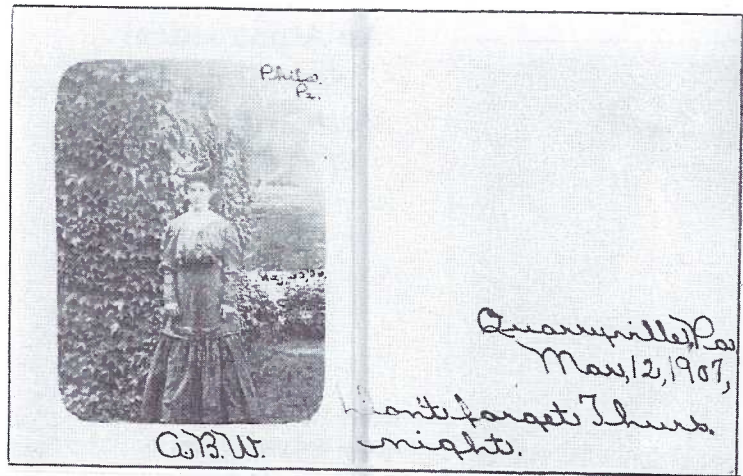 Phila.
Pa.
A.B.W.
Quarryville, Pa
May, 12, 1907,
Don't forget Thurs.
night.